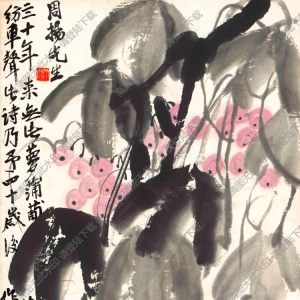 周揚先生
三十年来無此夢蒲萄
紡車聲此詩乃予四十歲後
作